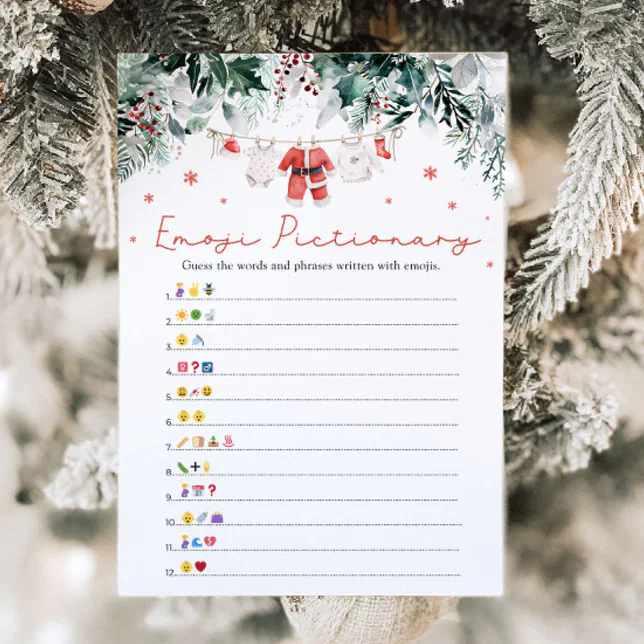 Emoji Pictionary
Guess the words and phrases written with emojis.
1. 🤰✌️🐝
2. ☀️🤢🚽
3. 👶🚿
4. 🚺❓🚹
5. 😩💉😃
6. 👶👶
7. 🥖🍞📥♨️
8. 🥒➕🍦
9. 🤰📅❓
10. 👶🍼👜
11. 🤰🌊💔
12. 👶❤️